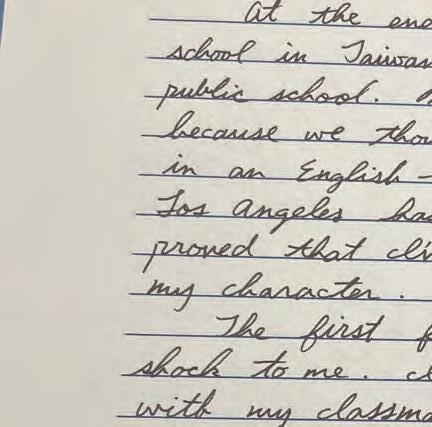 At the end
school in Taiwan
public school.
because we thou
in an English-
Los Angeles has
proved that cli
my character.
The first f
shock to me.
with my classma